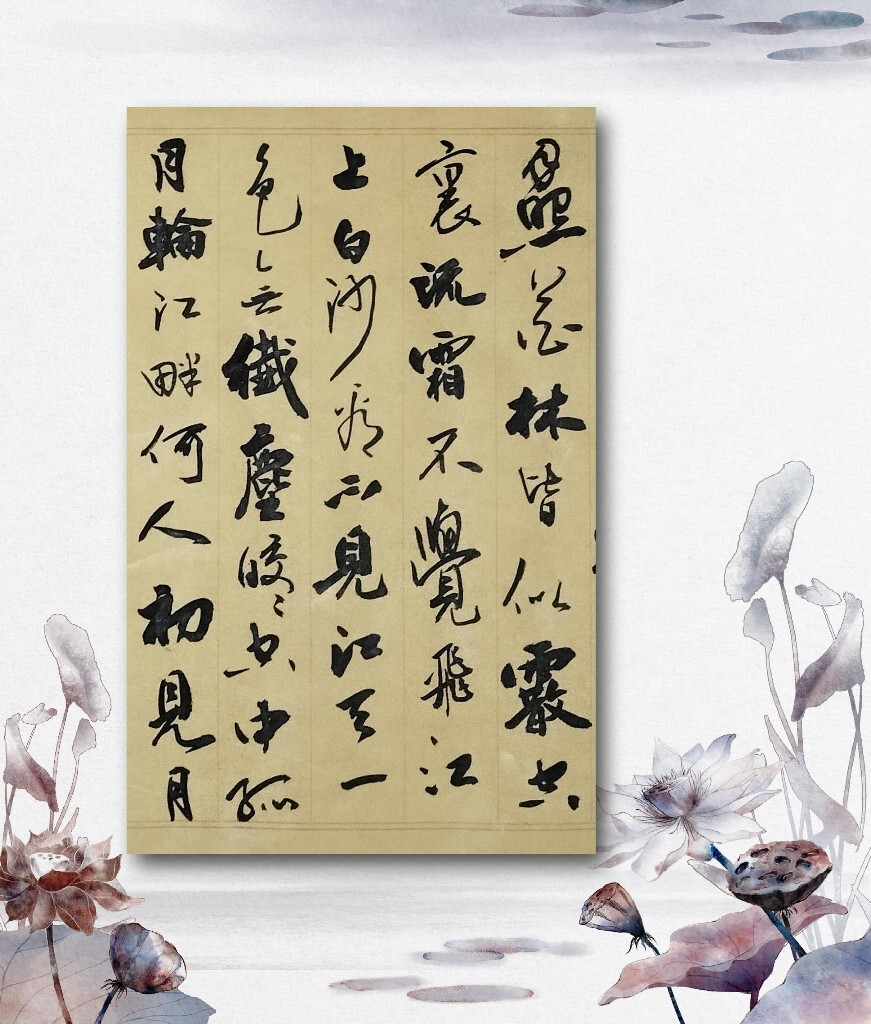 月照花林皆似霰空
裏流霜不覺飛汀
上白沙看不見江天一
色无纖塵皎〻空中孤
月輪江畔何人初見月